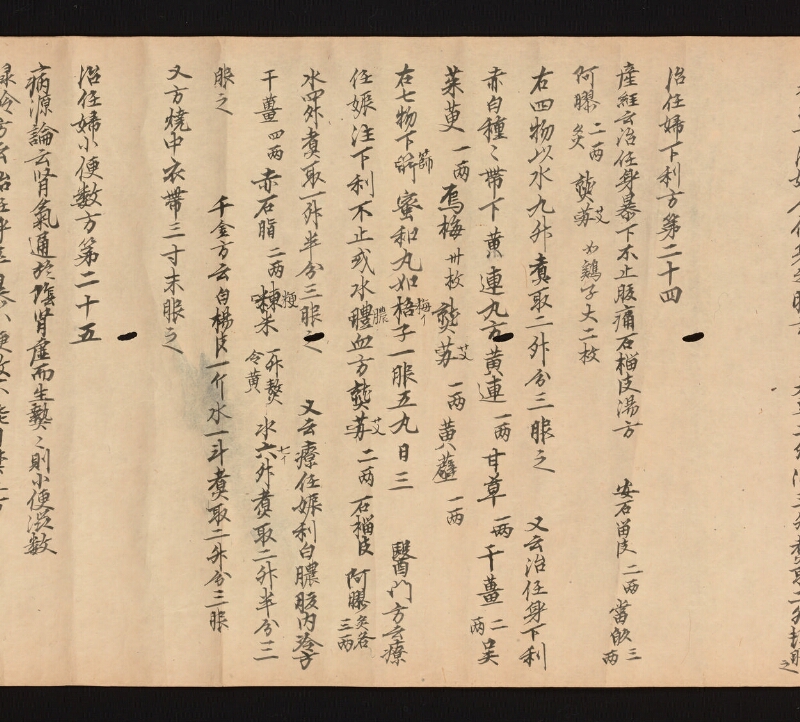 治任婦下利方第二十四
産経云治任身暴下不止腹痛石榴皮湯方 安石留皮二両 當帰三両
阿膠二両炙 熟艾如鶏子大二枚
右四物以水九升煮取二升分三服之 又云治任身下利
赤白種〻帶下黄連丸方 黄連一両 甘草一両 干薑二両 呉
茱萸一両 烏梅卅枚 熟艾一両 黄蘗一両
右七物下篩蜜和丸如梧子一服五丸日三 醫門方云療
任娠注下利不止或水或膿血方 熟艾二両 石榴皮 阿膠炙各三両
水四升煮取一升半分三服之 又云療任娠利白膿腹内冷方
干薑四両 赤石脂二両 粳米一升熬令黄 水六七イ升煮取二升半分三
服之 千金方云白楊皮一斤水一斗煮取二升分三服
又方燒中衣帶三寸末服之
治任婦小便數方第二十五
病源論云腎氣通於陰腎虚而生熱〻則小便渋數